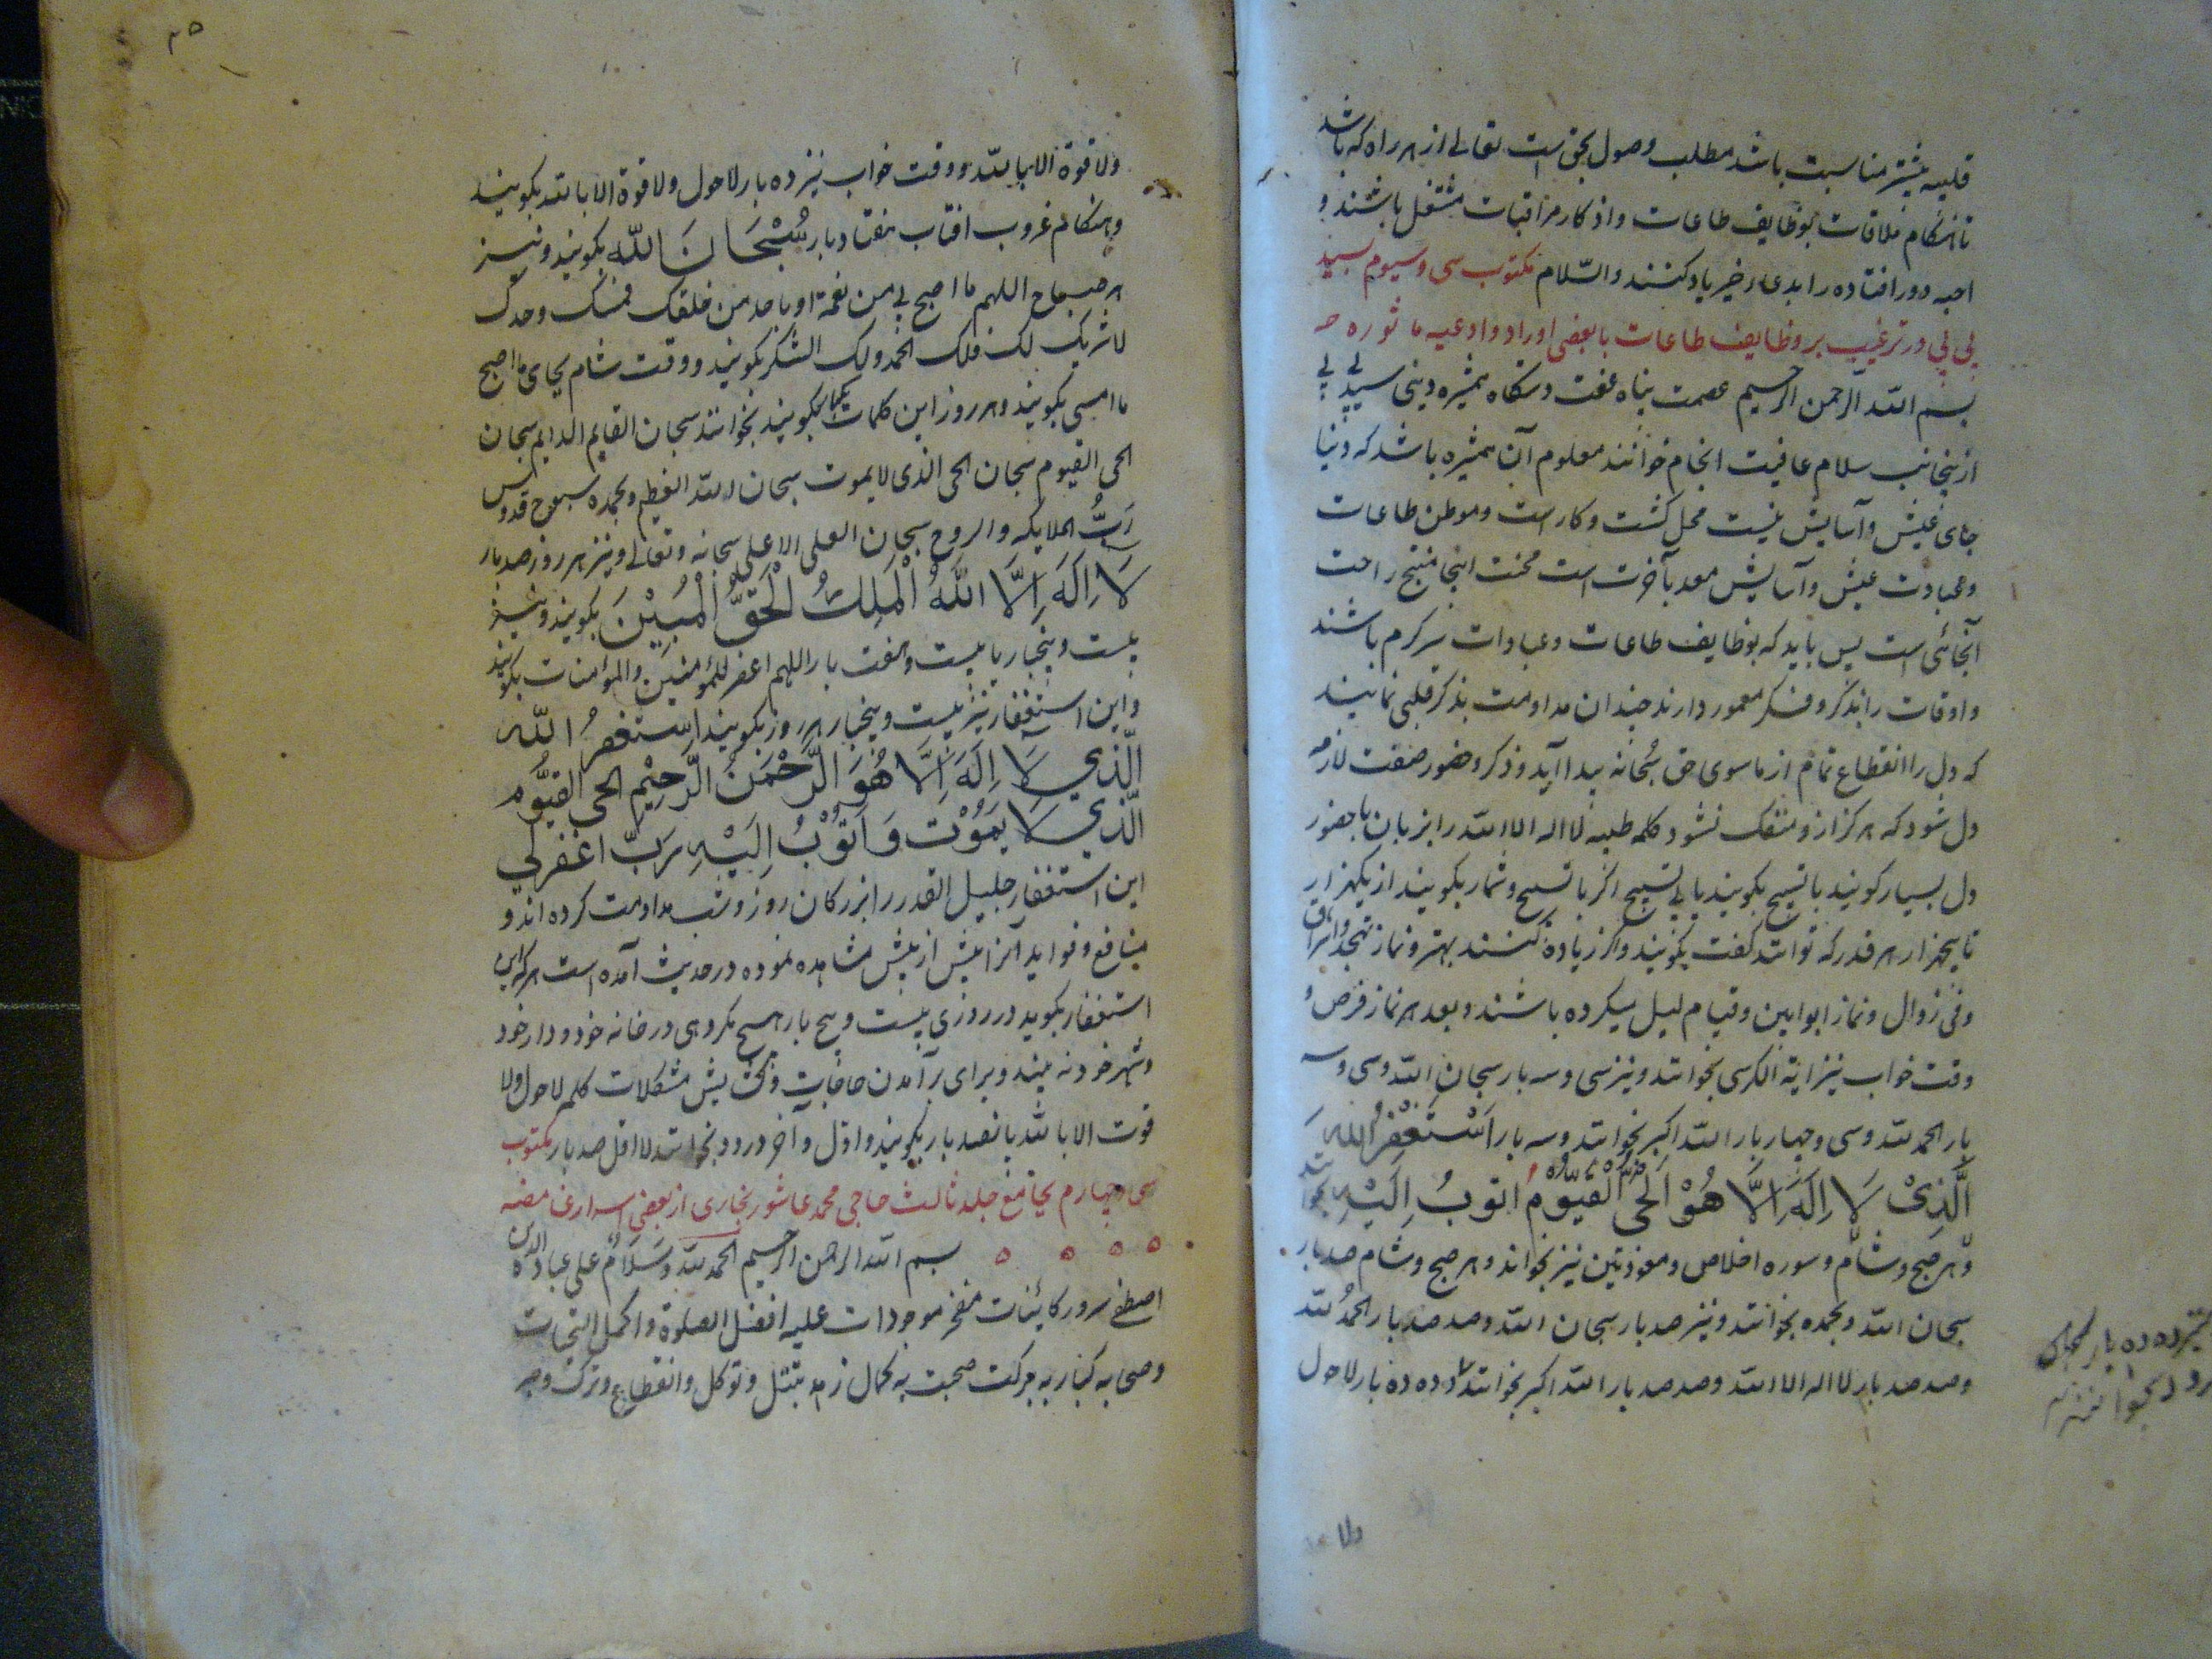 قلبیه بیشتر مناسبت باشد مطلب وصول بحق است تعالی از هر راه که باشد
تا هنگام ملاقات بوظایف طاعات و اذکار مراقبات مشتغل باشند و
احبه دور افتاده را بدعاء خیر یاد کنند والسّلام مکتوب سی و سیوم بسید
بی بی در ترغیب بر وظایف طاعات با بعضی اوراد و ادعیه ماثوره
بسم الله الرّحمن الرّحیم عصمت پناه عفت دستگاه همشیره دینی سید بی بی
ازینجانب سلام عافیت انجام خوانند معلوم آن همشیره باشد که دنیا
جای عیش و آسایش نیست محل کشت و کار است و موطن طاعات
و عبادت عیش و آسایش معد بآخرت است محنت اینجا منتج راحت
آنجائی است پس باید که بوظایف طاعات و عبادات سرکرم باشند
و اوقات را بذکر و فکر معمور دارند چندان مداومت بذکر قلبی نمایند
که دل را انقطاع تمام از ماسوی حق سُبحانه پیدا آید و ذکر و حضور صفت لازمه
دل شود که هرکز ازو منفک نشود کلمه طیبه لا اله الا الله را بزبان با حضور
دل بسیار کویند با تسبیح بکویند یا بی تسبیح اکر با تسبیح و شمار بکویند از یکهزار
تا پنجهزار هر قدر که توانند کفت بکویند و اکر زیاده کنند بهتر و نماز تهجد و اشراق
و فی زوال و نماز اوابین و قیام لیل میکرده باشند و بعد هر نماز فرض و
وقت خواب نیز ایة الکرسی بخوانند و نیز سی و سه بار سبحان الله و سی و سه
بار الحمد لله و سی و چهار بار الله اکبر بخوانند و سه بار اَسْتَغْفِرُ الله
الَّذِیْ لَا اِلَهَ اِلَّا هُوَ الْحَیُّ الْقَیُّوْمُ اتوبُ اِلَیْهِ بخوانند
و هر صبح و شام و سوره اخلاص و معوذتین نیز بخواند و هر صبح و شام صد بار
سبحان الله و بحمده بخوانند و نیز صد بار سبحان الله و صد صد بار الحمدُ لله
و صد صد بار لا اله الا الله و صد صد بار الله اکبر بخوانند و ده ده بار لاحول
نیز ده ده بار
بخوانند
ولا
۲۵
ولا قوة الا بالله و وقت خواب نیز ده بار لاحول ولا قوة الا بالله بکویند
و هنکام غروب افتاب هفتاد بار سُبْحَانَ الله بکویند و نیز
هر صباح اللهم ما اصبح بی من نعمة او باحد من خلقک فمنک وحدک
لا شریک لک فلک الحمد ولک الشکر بکویند و وقت شام بجای ما اصبح
ما امسی بکویند و هر روز این کلمات یکبار بکویند بخوانند سبحان القایم الدایم سبحان
الحی القیوم سبحان الحی الذی لا یموت سبحان الله العظیم و بحمده سبوح قدوس
رَبُّ الملایکه والروح سبحان العلی الاعلی سبحانه و تعالی و نیز هر روز صد بار
لَا اِلَهَ اِلَّا اللهُ الْمَلِکُ الْحَقُّ الْمُبِیْنَ بکویند و نیز
بیست و پنجبار یا بیست و هفت بار اللهم اغفر للمؤمنین والمؤمنات بکویند
و این استغفار نیز بیست و پنجبار هر روز بکویند اسْتَغفِرُ الله
الَّذِي لَا اِلَهَ اِلَّا هُوَ الرَّحْمَنُ الرَّحِیْمِ الحی القیُّوم
الَّذِي لَا یَمُوْت وَ اَتُوْبُ اِلَیْهِ رَبِّ اغْفِرلی
این استغفار جلیل القدر را بزرکان روز و شب مداومت کرده اند و
منافع و فواید آنرا بیش از بیش مشاهده نموده در حدیث آمده است هر که این
استغفار بکوید در روزی بیست و پنج بار هیچ مکروهی در خانه خود و دار خود
و شهر خود نه بیند و برای برآمدن حاجات و کشایش مشکلات کلمه لاحول ولا
قوت الا بالله پانصد بار بکویند و اول و آخر درود بخوانند لا اقل صد بار مکتوب
سی و چهارم بجامع جلد ثالث حاجی محمد عاشور بخاری از بعضی اسرار غامضه
بسم الله الرحمن الرحیم الحمد لله وَ سَلَامٌ علی عباده الذین
اصطفی سرور کاینات مفخر موجودات علیه افضل الصلوة و اکمل التحیات
و صحابه کبار به برکت صحبت به کمال زهد تبتل و توکل و انقطاع و ترک و صبر